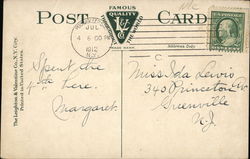 FAMOUS
QUALITY
THE WORLD
POST CARD
TRADE MARK
Address Only
JUL
4 6-00PM
1912
N.Y.
The Leighton & Valentine Co., N.Y. City.
Printed in United States.
Spent the
4th here.
Margaret.
Miss Ida Lewis
340 Princeton Ave
Greenville
N.J.